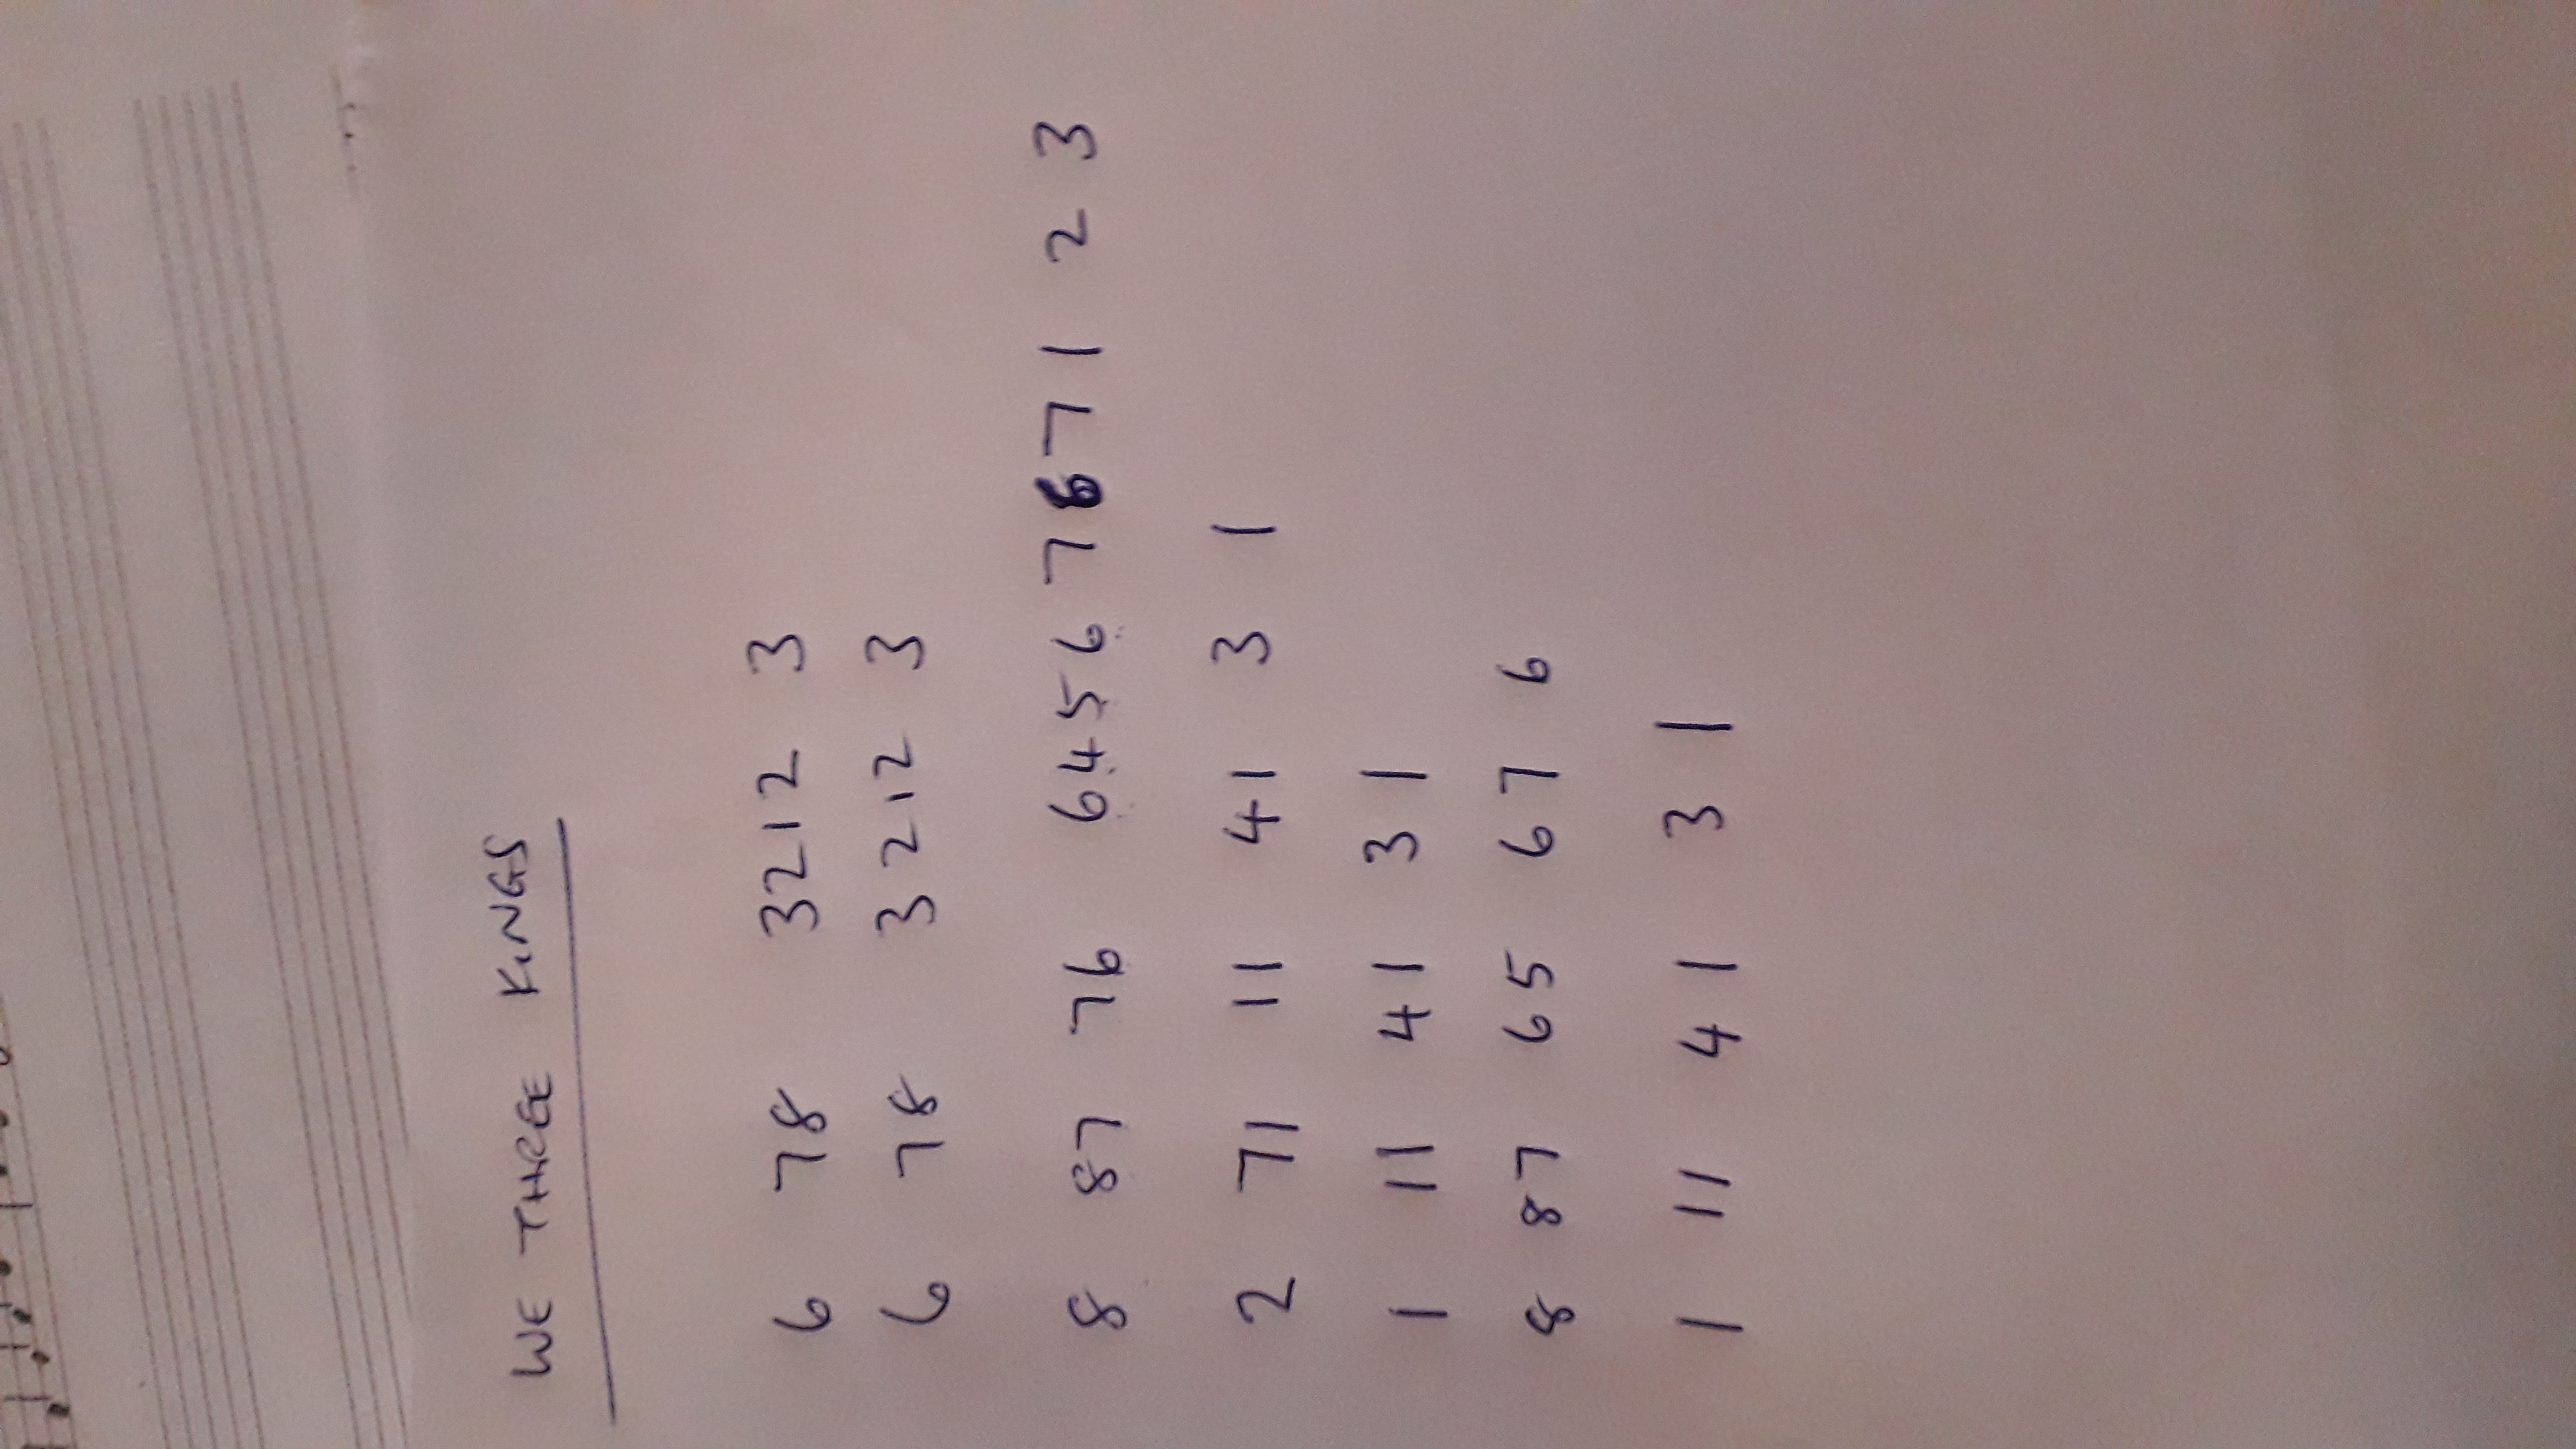 WE THREE KINGS
6 78 3212 3
6 78 3212 3
8 87 76 6456 7671 2 3
2 71 11 41 3 1
1 11 41 31
8 87 65 67 6
1 11 41 31